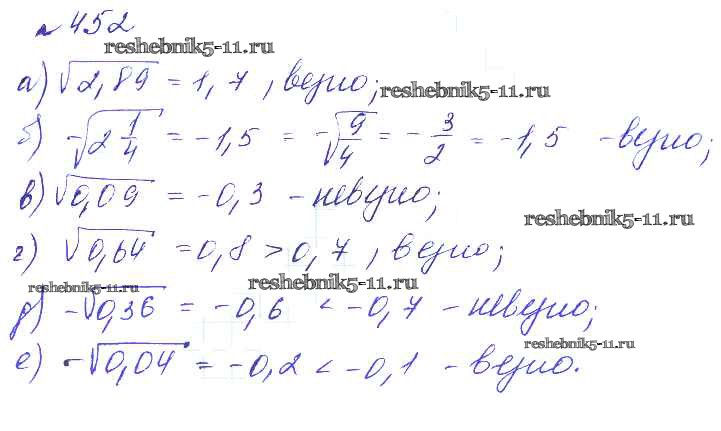 № 452
reshebnik5-11.ru
а) √2,89 = 1,7, верно;
reshebnik5-11.ru
б) -√2 1/4 = -1,5 = -√9/4 = -3/2 = -1,5 - верно;
в) √0,09 = -0,3 - неверно;
reshebnik5-11.ru
г) √0,64 = 0,8 > 0,7, верно;
reshebnik5-11.ru
reshebnik5-11.ru
д) -√0,36 = -0,6 < -0,7 - неверно;
reshebnik5-11.ru
е) -√0,04 = -0,2 < -0,1 - верно.